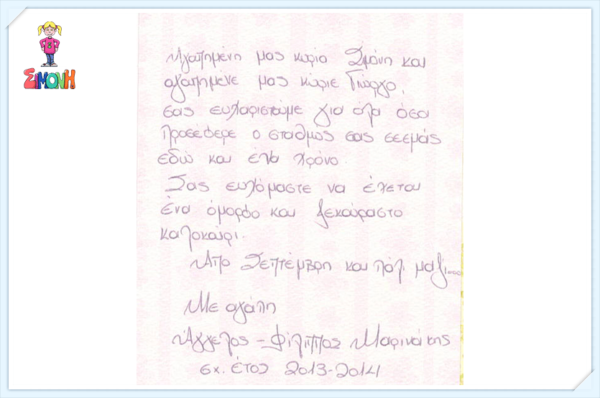 ΣΙΜΩΝΗ
Αγαπημένη μας κυρία Σιμόνη και
αγαπημένε μας κύριε Γιώργο,
σας ευχαριστούμε για όλα όσα
προσέφερε ο σταθμός σας σεεμάς
εδώ και ένα χρόνο
Σας ευχόμαστε να έχετε
ένα όμορφο και ξεκούραστο
καλοκαίρι.
Από Σεπτέμβρη και πάλι μαζί....
Με αγάπη
Άγγελος - Φίλιππος Μαρινάκης
σχ. έτος 2013-2014